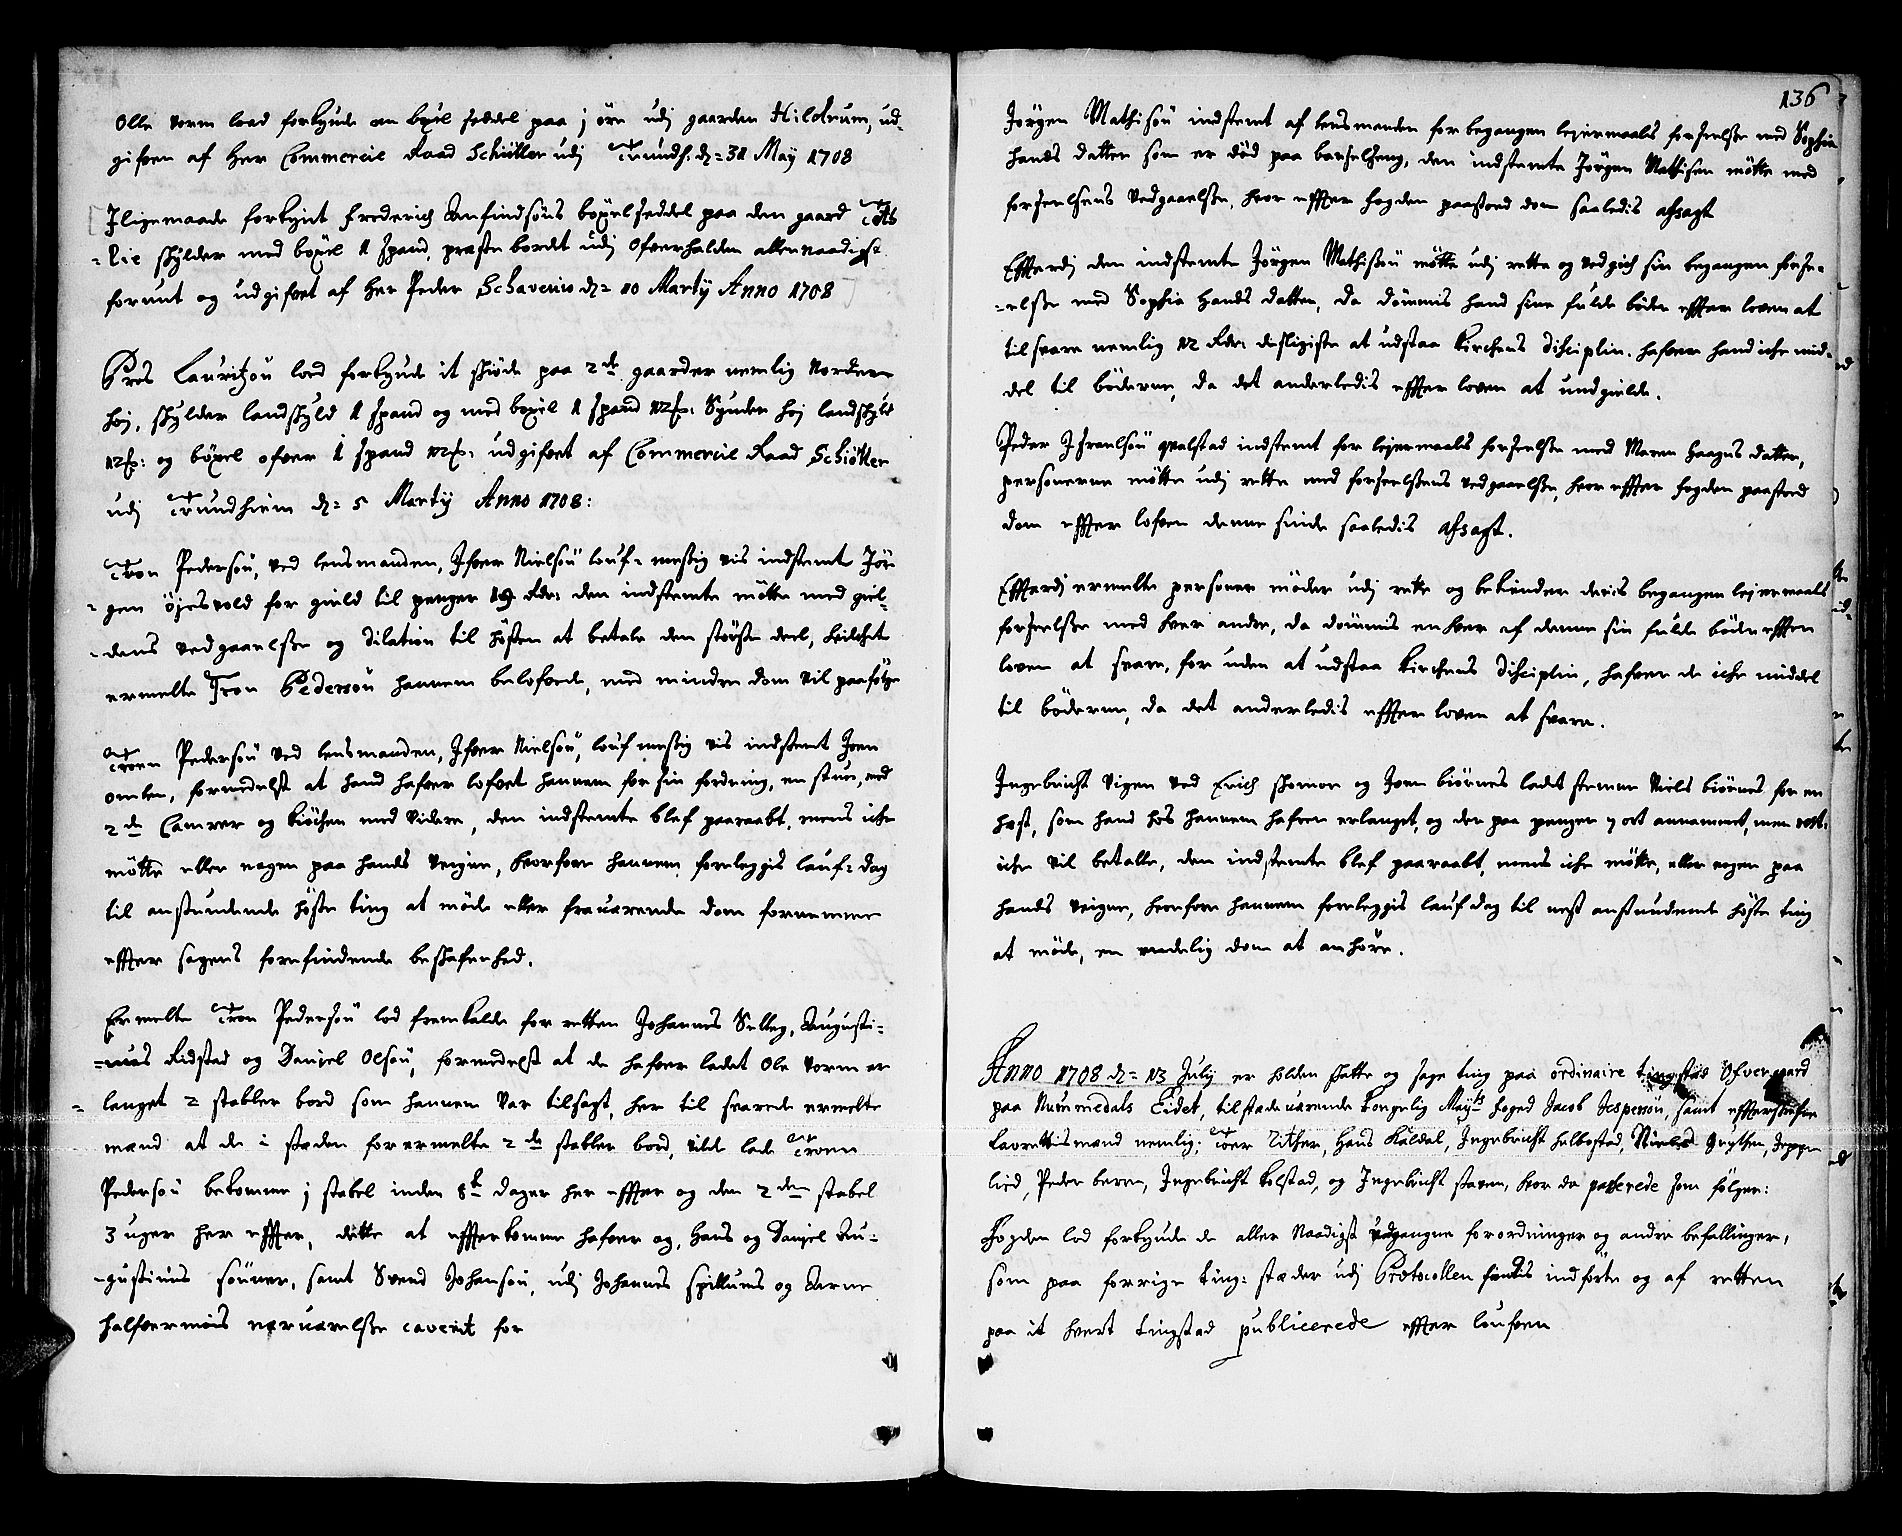 Olle Worm lood forkynde en böxel seddel paa j öre udj gaarden Hildrum, ud-
gifven af Her Commercie Raad Schiötter udj Trundh. d= 31 Maÿ 1708
Jligemaade forkynt Frederich Anfindsöns böxel seddel paa den gaard
-lie schylder med böxel 1 spand, præste bordet udj Ofverhalden allernaadigst
forunt og udgifvet af Her Peder Schavenio d= 10 Martÿ Anno 1708
Lauritzön lood forkynde it schiöde paa 2de gaarder nemlig Nordere
höj, schylder landschyld 1 spand og med böxel 1 spand 12 Synder höj landschyld
og böxel ofver 1 spand udgifvet af Commercie Raad Schiötter
udj Trundhiem d= 5 Martÿ Anno 1708:
Tron Pedersön, ved lensmanden, Jfver Nielsön louf-messig vis indstemt Jör-
gen öjesvold for gield til penger 19 Rdr: den indstemte mötte med giel-
-dens vedgaaelsse og dilation til hösten at betale den störste deel, hvilchet
ermelte Tron Pedersön hannem belofvede, med mindre dom vil paafölge
Troen Pedersön ved lensmanden, Jfver Nielsön, louf messig vis indstemt Joen
, formedelst at hand hafver lofvet hannem for sin fordring, en stue, med
2de Camrer og kiöchen med videre, den indstemte blef paaraabt, mens iche
mötte eller nogen paa hands veigne, hvorfore hannem foreleggis lauf-dag
til anstundende höste ting at möde eller fraværende dom fornemme
effter sagens forefindende beschafenhed.
Ermelte Tron Pedersön lod fremkalde for retten Johannes Selleg, Augusti-
-nus Ridstad og Daniel Olsön, formedelst at de hafver ladet Ole Worm er
langet 2 stabler bord som hannem var tilsagt, her til svarede ermelte
mænd at de i steden for ermelte 2de stabler bord, vilde lade Troen
Pedersön bekomme j stabel inden 8te dager her effter og den 2den stabel
3 uger her effter, dette at effterkomme hafver og, Hans og Daniel Au-
-gustinus sönner, samt Svend Johansön, udj Johannes Spillums og Arne
halfvermöis nerværelsse caverit for
136
Jörgen Mathisön indstemt af lensmanden for begangen lejermaals forseelsse med Sophia
Hands datter som er död paa barselseng, den indstemte Jörgen Mathisen mötte med
forseelsens vedgaaelsse, hvor effter fogden paastod dom saaledis afsagt
Effterdj den indstemte Jörgen Mathisön mötte udj rette og vedgich sin begangen forse-
-elsse med Sophia Hands datter, da dömmis hand sine fulde böder effter loven at
tilsvare nemlig 12 Rdr: disligiste at udstaa Kirchens Disciplin. hafver hand iche mid-
del til böderne, da det anderledis effter loven at undgielde.
Peder Jfverlsön qvalstad indstemt for lejermaals forseelsse med Maren Haagens datter,
personerne mötte udj rette med forseelssens vedgaaelsse, hvor effter fogden paastod
dom effter lofven denne sinde saaledis afsagt.
Effterdj ermelte personer möder udj rette og bekiender deris begangen lejermaals
forseelsse med hver andre, da dömmis enhver af denne sin fulde böder effter
loven at svare, for uden at udstaa Kirchens Disciplin, hafver de iche middel
til böderne, da det anderledis effter loven at svare.
Ingebricht Vigen ved Erich Skomoe og Joen biörnes ladet stemne Niels biörnes for en
hest, som hand hos hannem hafver erlanget, og der paa penger 7 ort annammet, men rest.
iche vil betalle, den indstemte blef paaraabt, mens iche mötte, eller nogen paa
hands veigne, hvorfore hannem foreleggis lauf dag til nest anstundende höste ting
at möde, en endelig dom at anhöre.
Anno 1708 d= 13 Julij er holden schatte og sage ting paa ordinaire tingstæd Ofvergaard
paa Nummedals Eidet, tilstæde værende Kongelig Mayts foged Jacob Jespersön, samt effterschrefne
Lavrettismænd nemlig; Toer Zither, Hans Kaldal, Ingebricht halbostad, Niels grythen, Jeppe
lied, Peder berre, Ingebricht kolstad, og Ingebricht staven, hvor da passerede som fölger:
Fogden lod forkynde de aller Naadigst udgangne forordninger og andre befallinger,
som paa forrige ting-stæder udj Protocollen findis indförte og af retten
paa it hvert tingstad publicerede effter loufven